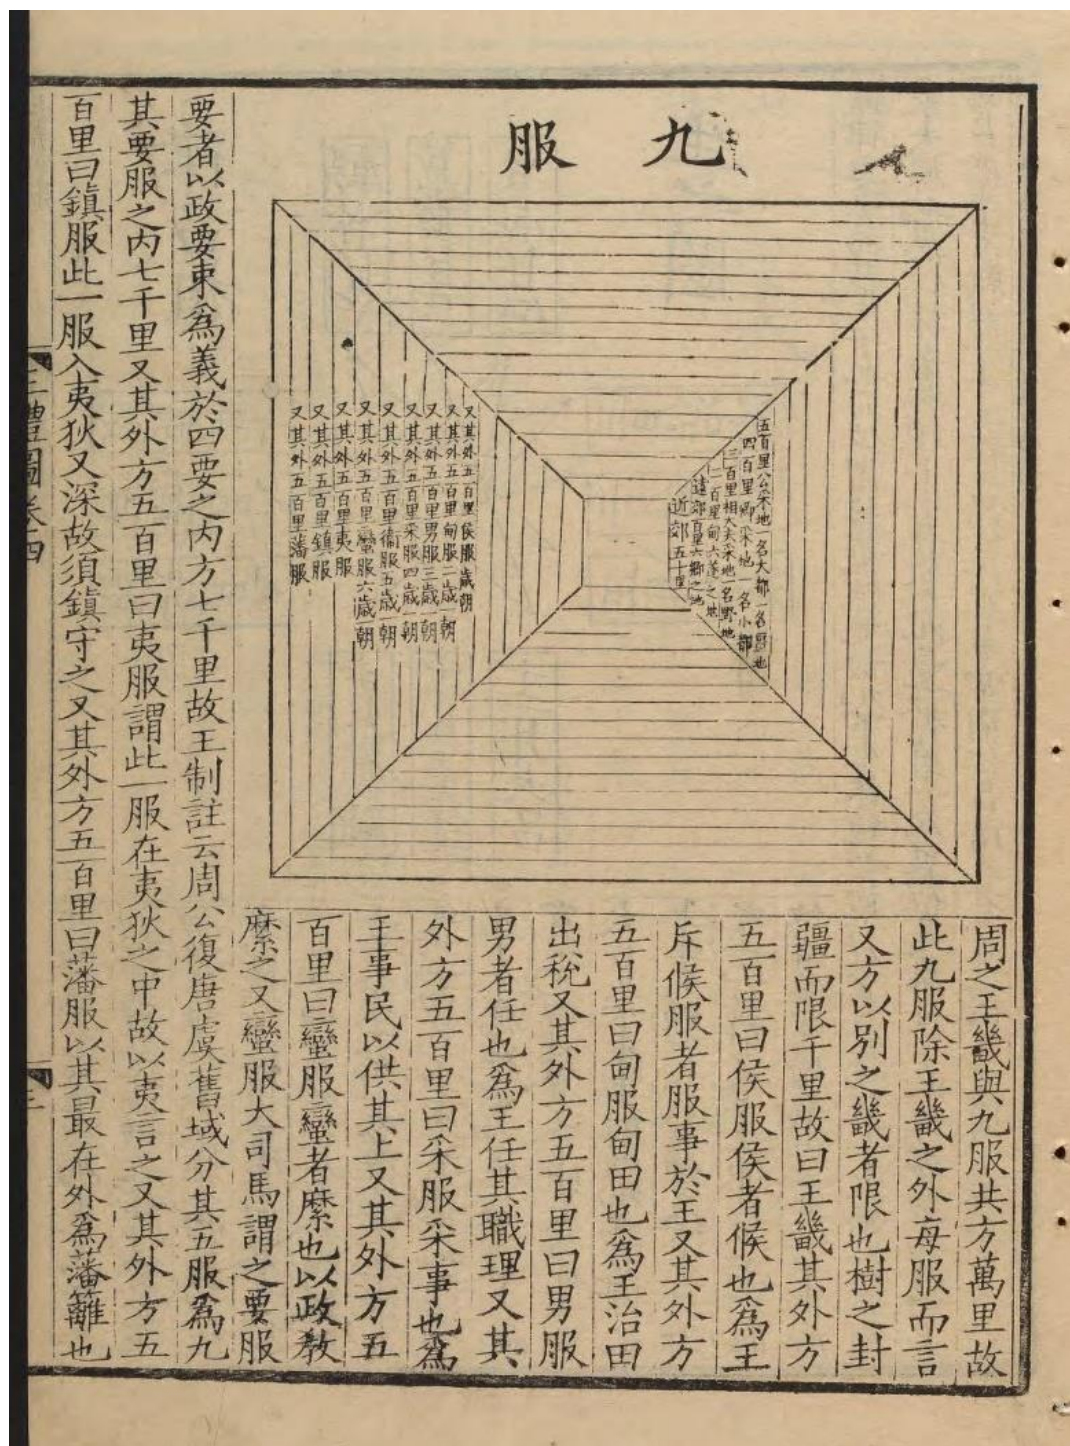 九服
五百里公采地一名大都一名畺地
四百里卿采地一名小都
三百里相大夫采地一名野地
二百里甸六遂之地
遠郊百里六鄉之地
近郊五十里
又其外五百里侯服歲朝
又其外五百里甸服二歲一朝
又其外五百里男服三歲一朝
又其外五百里采服四歲一朝
又其外五百里衞服五歲一朝
又其外五百里蠻服六歲一朝
又其外五百里夷服
又其外五百里鎮服
又其外五百里藩服
周之王畿與九服共方萬里故
此九服除王畿之外每服而言
又方以別之畿者限也樹之封
疆而限千里故曰王畿其外方
五百里曰侯服侯者候也爲王
斥候服者服事於王又其外方
五百里曰甸服甸田也爲王治田
出稅又其外方五百里曰男服
男者任也爲王任其職理又其
外方五百里曰采服采事也爲
王事民以供其上又其外方五
百里曰蠻服蠻者縻也以政教
縻之又蠻服大司馬謂之要服
要者以政要束爲義於四要之內方七千里故王制註云周公復唐虞舊域分其五服爲九
其要服之內七千里又其外方五百里曰夷服謂此一服在夷狄之中故以夷言之又其外方五
百里曰鎮服此一服入夷狄又深故須鎮守之又其外方五百里曰藩服以其最在外爲藩籬也
三禮圖卷四